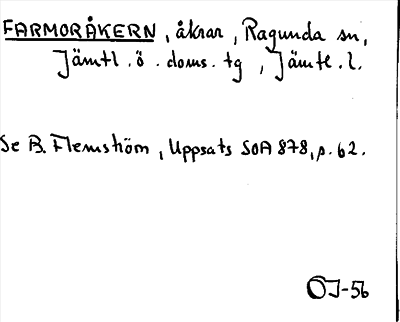 FARMORÅKERN, åkrar, Ragunda sn,
Jämtl. ö. doms. tg, Jämtl. l.
Se B. Flemström, Uppsats SOA 878, p. 62.
OJ-56